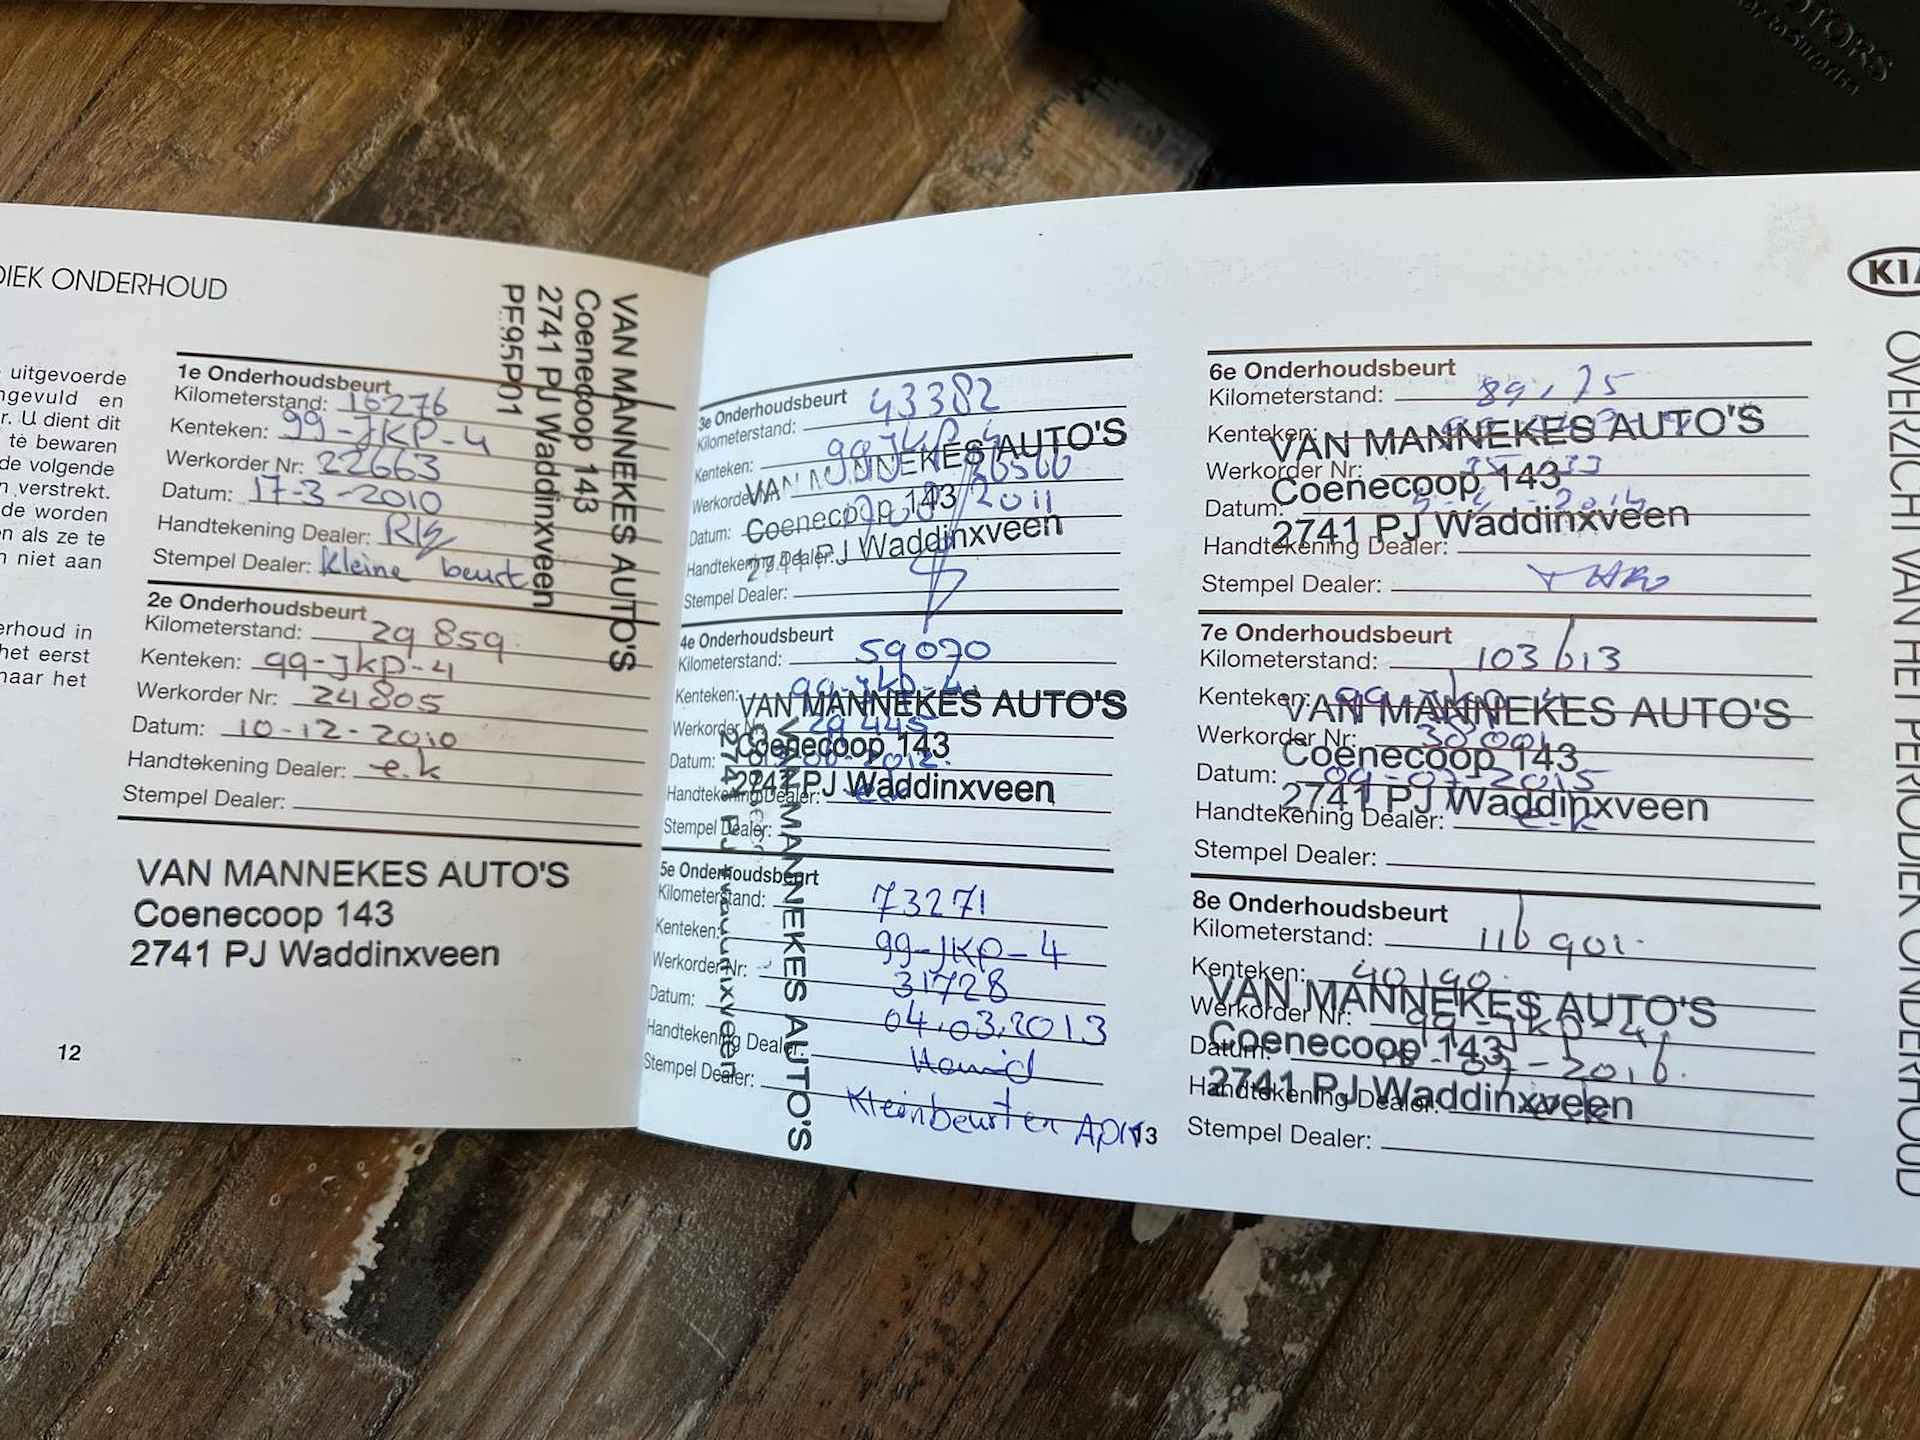 DIEK ONDERHOUD
uitgevoerde
ngevuld en
r. U dient dit
te bewaren
de volgende
n verstrekt.
de worden
n als ze te
n niet aan
erhoud in
het eerst
naar het
1e Onderhoudsbeurt
Kilometerstand: 16276
Kenteken: 99-JKP-4
Werkorder Nr: 22663
Datum: 17-3-2010
Handtekening Dealer:
Stempel Dealer: Kleine beurt
VAN MANNEKES AUTO'S
Coenecoop 143
2741 PJ Waddinxveen
PF95P01
2e Onderhoudsbeurt
Kilometerstand: 29859
Kenteken: 99-JKP-4
Werkorder Nr: 24805
Datum: 10-12-2010
Handtekening Dealer: e.k
Stempel Dealer:
VAN MANNEKES AUTO'S
Coenecoop 143
2741 PJ Waddinxveen
12
3e Onderhoudsbeurt
Kilometerstand: 43382
Kenteken: 99 JKP 4
Werkorder
Datum: 2011
Handtekening Dealer:
Stempel Dealer:
VAN MANNEKES AUTO'S
Coenecoop 143
2741 PJ Waddinxveen
4e Onderhoudsbeurt
Kilometerstand: 59070
Kenteken: 99-JKP-4
Werkorder Nr: 29445
Datum: 2012
Handtekening Dealer: e.k
Stempel Dealer:
VAN MANNEKES AUTO'S
Coenecoop 143
2741 PJ Waddinxveen
5e Onderhoudsbeurt
Kilometerstand: 73271
Kenteken: 99-JKP-4
Werkorder Nr: 31728
Datum: 04.03.2013
Handtekening Dealer: Hamid
Stempel Dealer: Kleinbeurt en APK
VAN MANNEKES AUTO'S
2741 PJ Waddinxveen
13
KIA
6e Onderhoudsbeurt
Kilometerstand: 89,75
Kenteken:
Werkorder Nr:
Datum:
Handtekening Dealer:
Stempel Dealer:
VAN MANNEKES AUTO'S
Coenecoop 143
2741 PJ Waddinxveen
7e Onderhoudsbeurt
Kilometerstand: 103613
Kenteken: 99-JKP-4
Werkorder Nr: 38001
Datum: 09-07-2015
Handtekening Dealer: e.k
Stempel Dealer:
VAN MANNEKES AUTO'S
Coenecoop 143
2741 PJ Waddinxveen
8e Onderhoudsbeurt
Kilometerstand: 116901.
Kenteken: 40190.
Werkorder Nr: 99-JKP-4
Datum: 07-2016.
Handtekening Dealer: e.k
Stempel Dealer:
VAN MANNEKES AUTO'S
Coenecoop 143
2741 PJ Waddinxveen
OVERZICHT VAN HET PERIODIEK ONDERHOUD